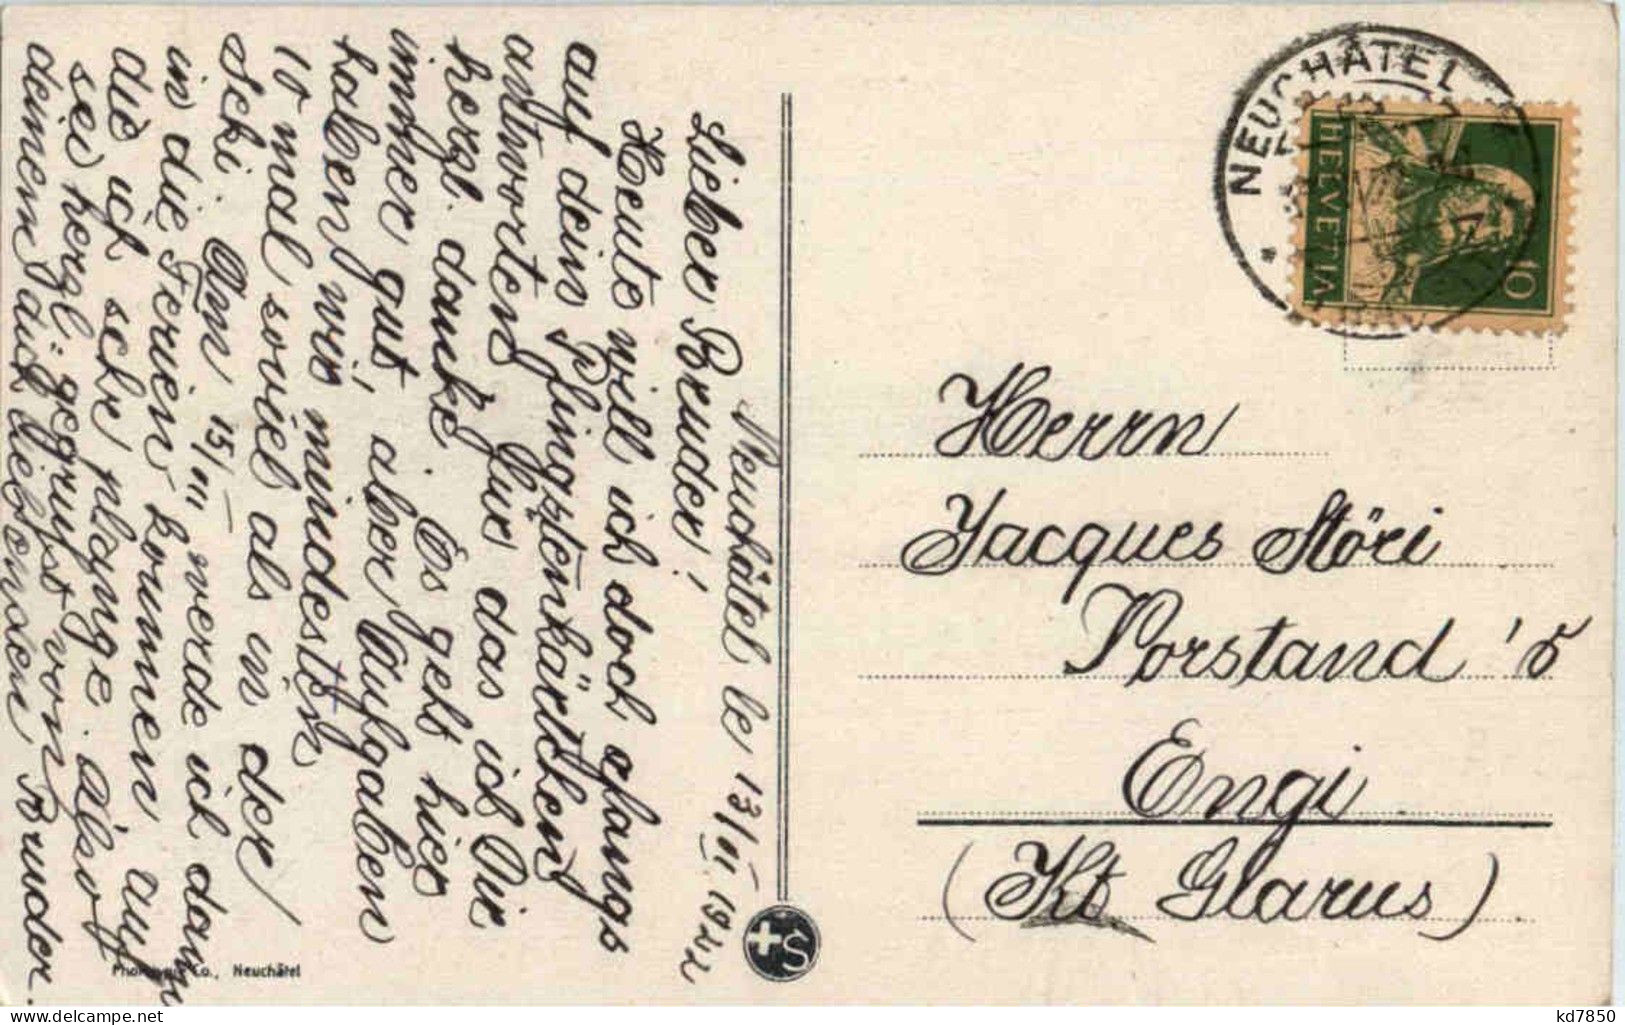 Neuchâtel le 13/VI 1922
Lieber Bruder!
Heute will ich doch
auf dein Pfingstenkärtchen
antworten für das ich Dir
herzl. danke. Es geht hier
immer gut, aber Aufgaben
haben wir mindestens
10 mal soviel als in der
Seki. Am 15/VII werde ich dann
in die Ferien kommen auf
die ich sehr plange. Also
sei herzl. gegrüsst von
deinem dich liebenden Bruder.
Photo Co., Neuchâtel
S
NEUCHÂTEL
HELVETIA
10
Herrn
Jacques Störi
Vorstand's
Engi
(Kt Glarus)
kd7850